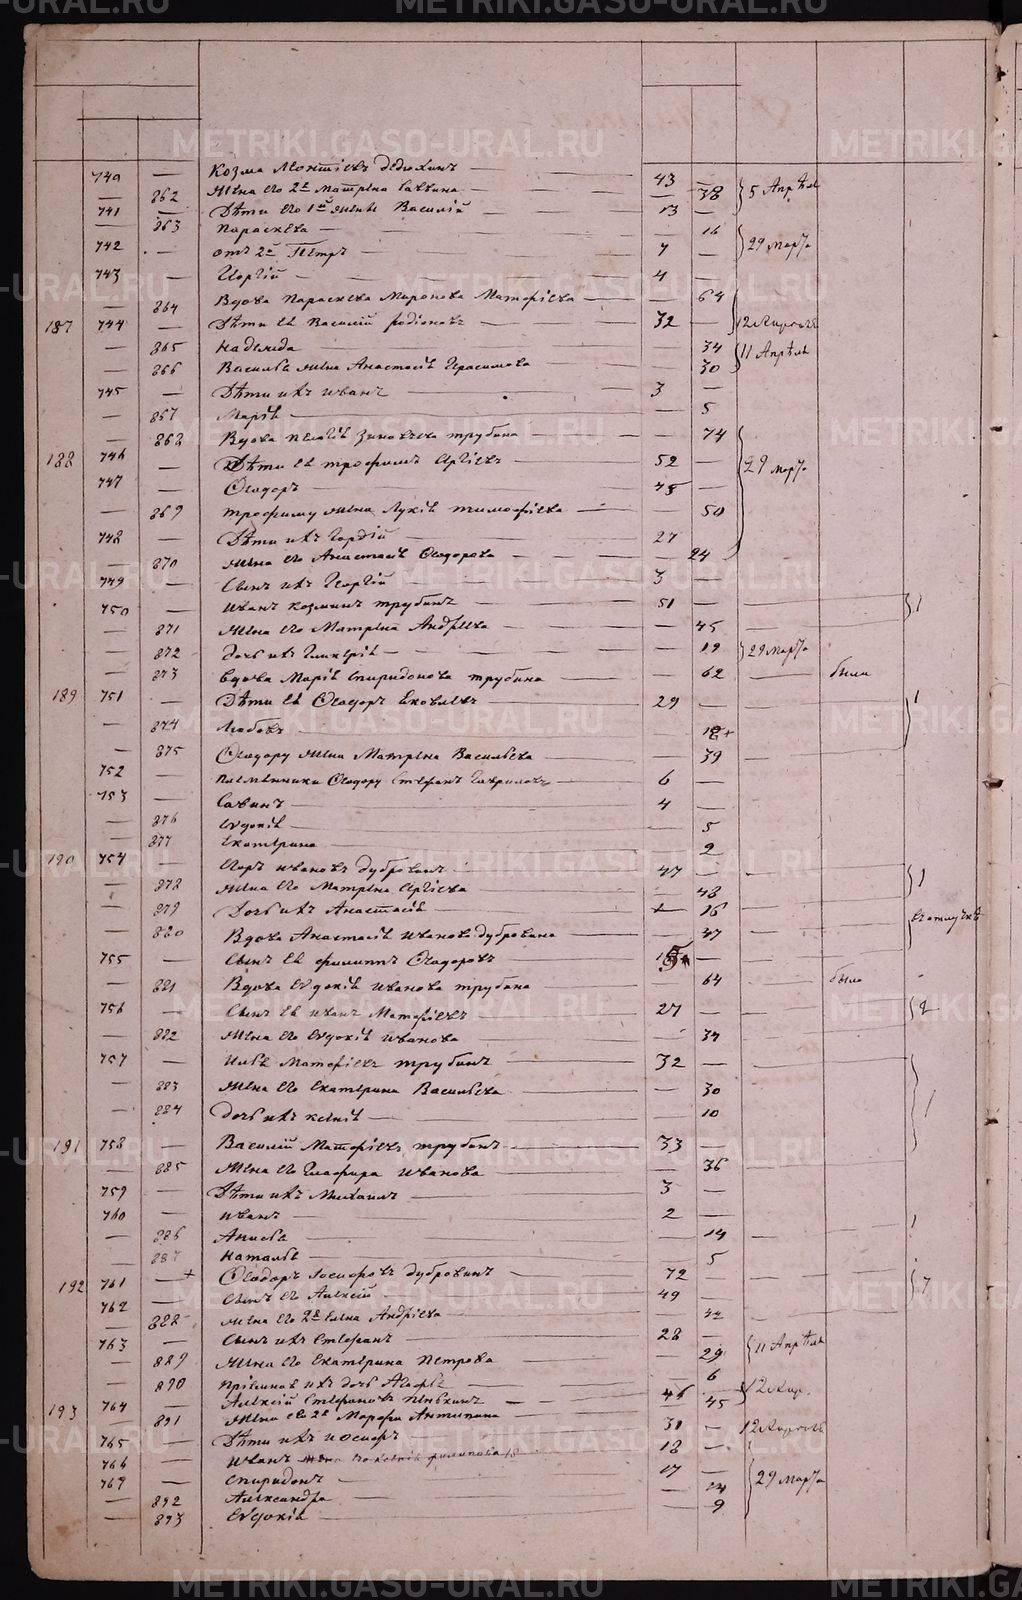 740 — Козма Леонтіевъ Дедюхинъ — 43 —
— 862 Жена его 2я Матрена Саввина — — 38 5 Апрѣля
741 — Дѣти его 1й жены Василій — 13 —
— 863 Параскева — — 16
742 — отъ 2й Петръ — 7 — 29 марта
743 — Георгій — 4 —
— 864 Вдова Параскева Миронова Матфіева — — 64
187 744 — Дѣти ея Василій Родіоновъ — 32 — 12 Апрѣля
— 865 Надежда — 34 11 Апрѣля
— 866 Василья жена Анастасія Герасимова — — 30
745 — Дѣти ихъ Иванъ — 3 —
— 867 Марія — — 5
— 868 Вдова Пелагія Зиновьева Трубина — — 74
188 746 — Дѣти ея Трофимъ 52 — 29 марта
747 — Ѳеодоръ — 45 —
— 869 Трофиму жена Лукія Тимофѣева — — 50
748 — Дѣти ихъ Гордій — 27
— 870 Жена его Анастасія Ѳеодорова — — 24
749 — Сынъ ихъ Георгій — 3 —
750 — Иванъ Козминъ Трубинъ — 51 — 1
— 871 Жена его Матрена Андреева — — 45
— 872 Дочь ихъ Гликерія — — 19 29 марта
— 873 Вдова Марія Спиридонова Трубина — — 62 — были
189 751 — Дѣти ея Ѳеодоръ Яковлевъ — 29 — 1
— 874 Любовь — — 18+
— 875 Ѳеодору жена Матрена Васильева — 39
752 — племянники Ѳеодору Стефанъ Гавриловъ — 6 —
753 — Савинъ — 4 —
— 876 Евдокія — — 5
— 877 Екатерина — — 2
190 754 — Егоръ Ивановъ Дубровинъ — 47 — 1
— 878 Жена его Матрена — — 48
— 879 Дочь ихъ Анастасія — 16 въ отлучкѣ
— 880 Вдова Анастасія Иванова Дубровина — — 47
755 — Сынъ ея Филиппъ Ѳеодоровъ —
— 881 Вдова Евдокія Иванова Трубина — — 64 — было
756 — Сынъ ея Иванъ Матфіевъ — 27 — 2
— 882 Жена его Евдокія Иванова — — 34
757 — Илья Матфіевъ Трубинъ — 32 —
— 883 Жена его Екатерина Васильева — — 30 1
— 884 Дочь ихъ Ксенія — 10
191 758 — Василій Матфіевъ Трубинъ — 33 —
— 885 Жена его Глафира Иванова — — 36
759 — Дѣти ихъ Михаилъ — 3 —
760 — Иванъ — 2 — 1
— 886 Анисья — — 14
— 887 Наталья — — 5
192 761 —+ Ѳеодоръ Іосифовъ Дубровинъ — 72 — 7
762 — Сынъ его Алексій — 49 —
— 888 Жена его 2я Елена Андреева — — 42
763 — Сынъ ихъ Стефанъ — 28 — 11 Апрѣля
— 889 Жена его Екатерина Петрова — — 29
— 890 Пріемная ихъ дочь — — 6 12 Апр.
193 764 — Алексій Стефановъ 46 45
— 891 Жена его 2я Марфа Антипина — 12 Апрѣля
765 — Дѣти ихъ Іосифъ 18 —
766 — Иванъ жена его Ксенія Филипова 18
767 — Спиридонъ — 17 — 29 марта
— 892 Александра — — 14
— 893 Евдокія — — 9